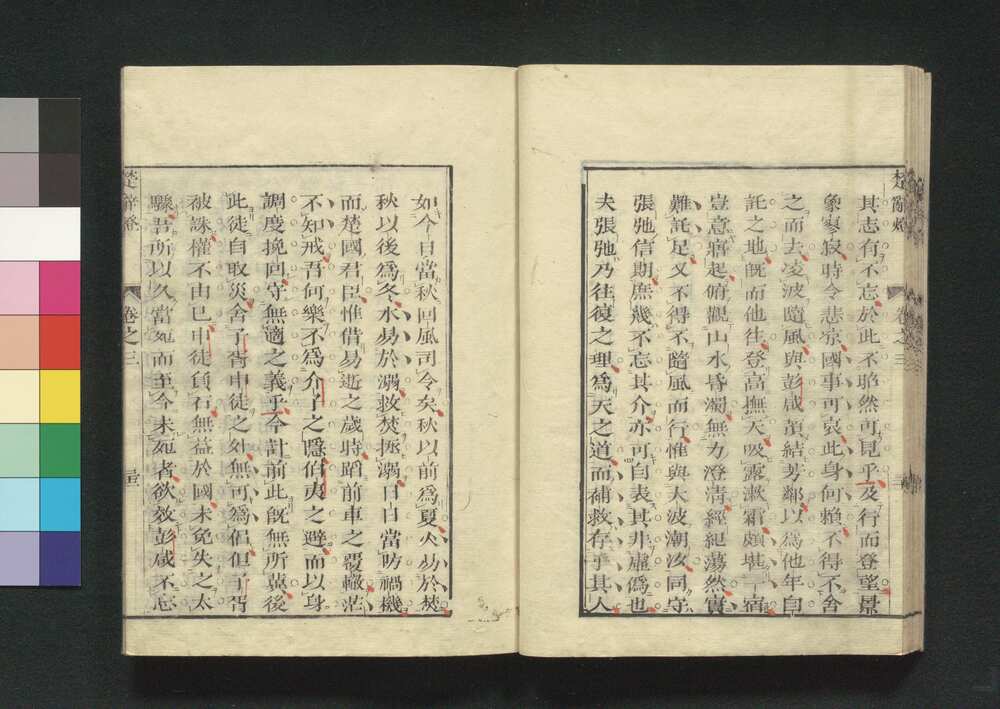 楚辭燈 卷之三
其志有不忘於此不昭然可見乎及行而登望景
象寥寂時令悲涼國事可哀此身何賴不得不舍
之而去凌波隨風與彭咸結芳鄰以爲他年自
託之地既而他往登高撫天吸露漱霜頗堪一宿
豈意寤起俯觀山水昏濁無力澄清經紀蕩然實
難託足又不得不隨風而行惟與大波潮汐同守
張弛信期庶幾不忘其介亦可自表其非虛僞也
夫張弛乃往復之理爲天之道而補救存乎其人
如今日當秋回風司令矣秋以前爲夏火易於焚
秋以後爲冬水易於溺救焚拯溺日日當防禍機
而楚國君臣惟借易逝之歲時蹈前車之覆轍茫
不知戒吾何樂不爲介子之隱伯夷之避而以身
調度挽回守無適之義乎今計前此既無所冀後
此徒自取災舍子胥申徒之外無可爲侶但子胥
被誅權不由己申徒負石無益於國未免失之太
驟吾所以久當死而至今未死者欲效彭咸不忘
楚辭燈 卷之三